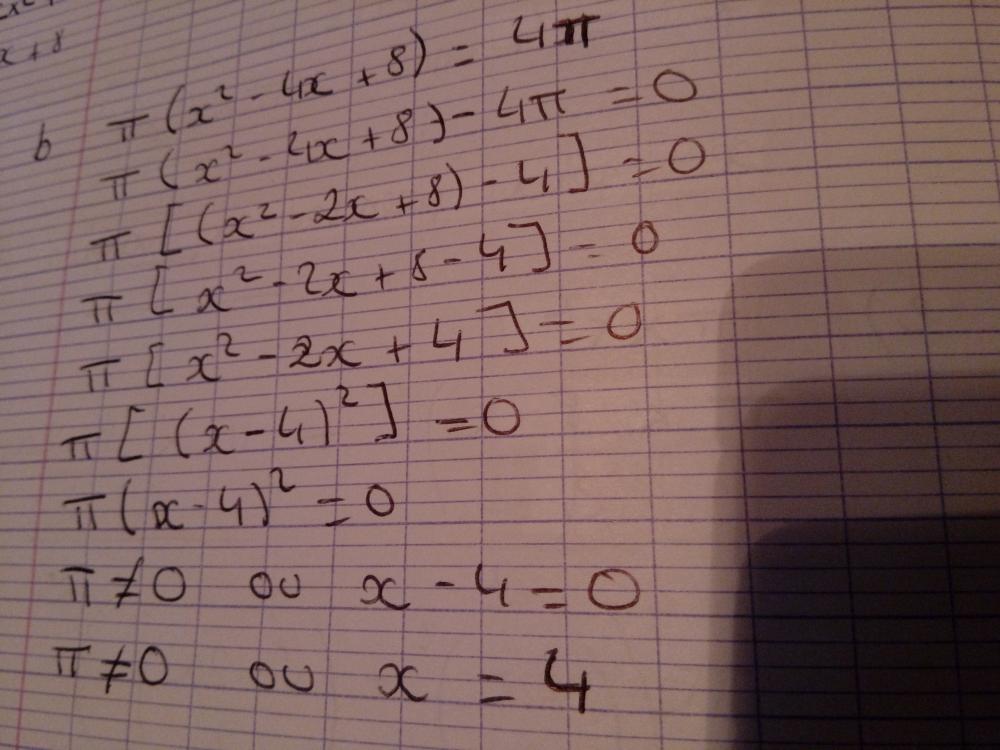 x + 8
b π(x² - 4x + 8) = 4π
π(x² - 4x + 8) - 4π = 0
π[(x² - 2x + 8) - 4] = 0
π[x² - 2x + 8 - 4] = 0
π[x² - 2x + 4] = 0
π[(x - 4)²] = 0
π(x - 4)² = 0
π ≠ 0 ou x - 4 = 0
π ≠ 0 ou x = 4